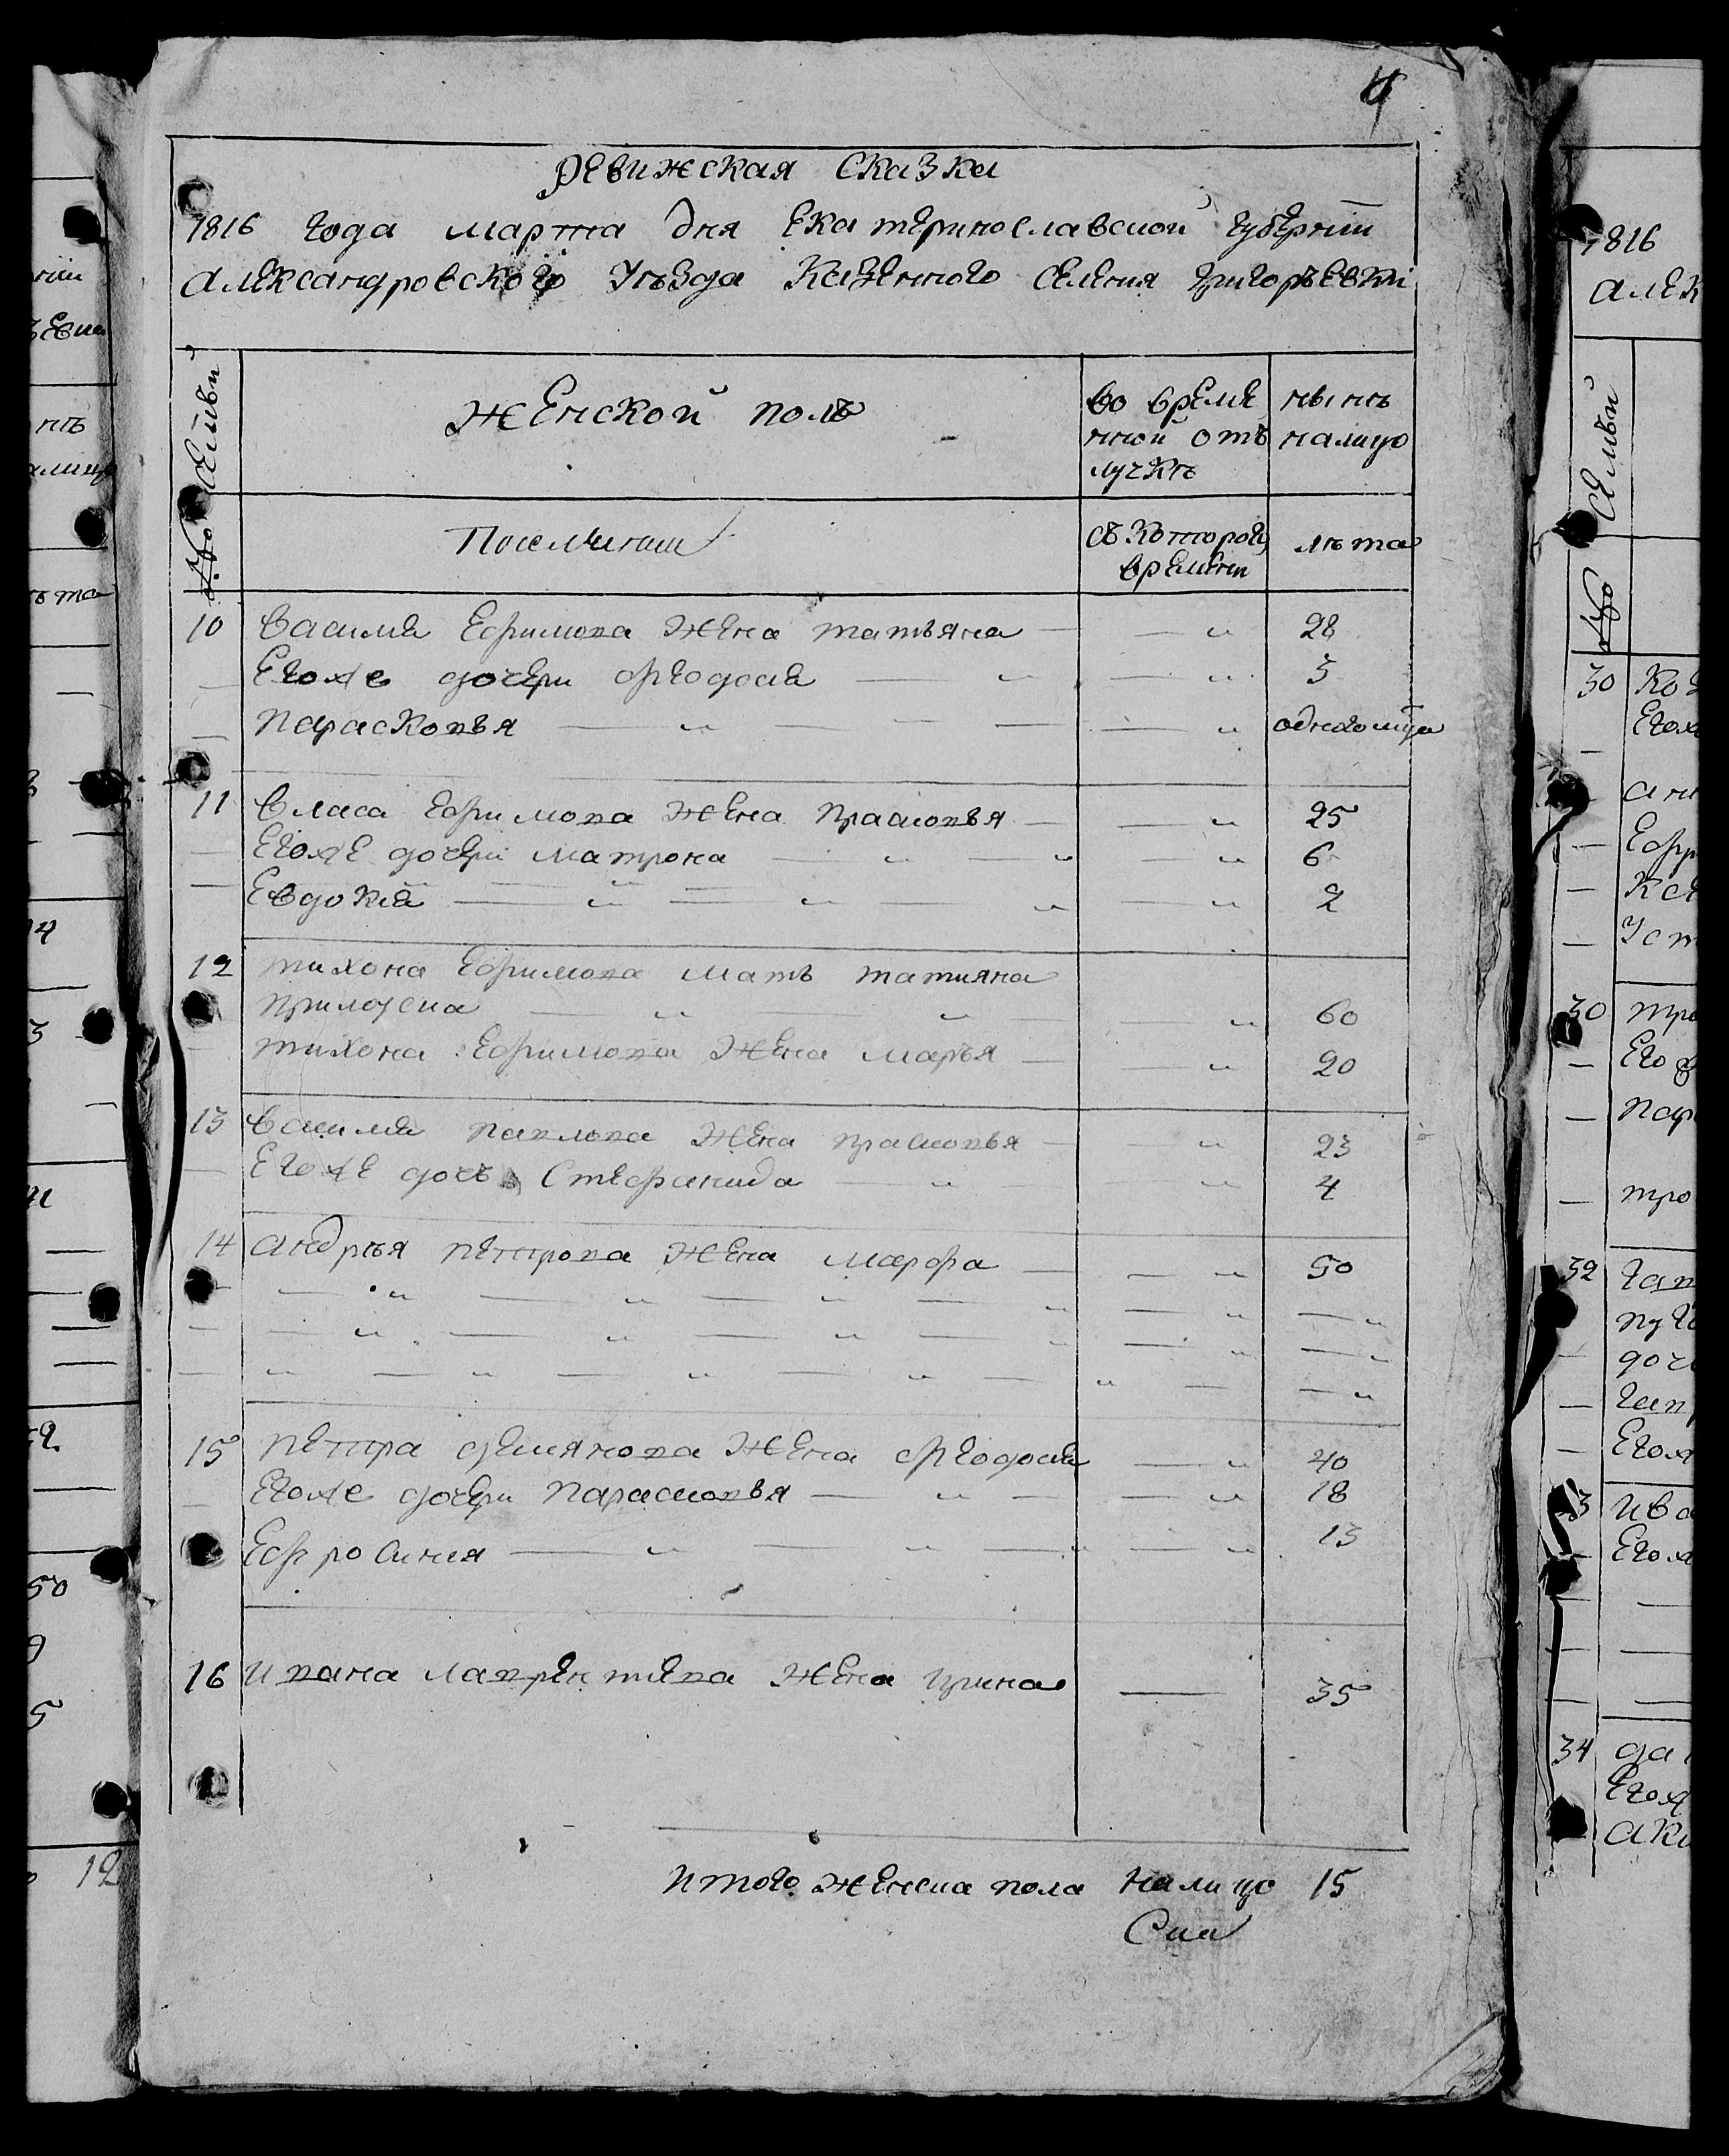 4
Ревижская Сказка
1816 года марта дня Екатеринославской губернiи
Александровского Уѣзда Казенного Селения Григорьевки
№о Семьи
Женской полъ
во время
нной отъ
лучкѣ
нынѣ
налицо
Поселяни
съ Которой
времени
лѣта
10 Василия Ефимова Жена татьяна — — „ 28
— Егоже дочери Феодосия — „ — „ 3
— Парасковья — „ — — — — „
11 Власа Ефимова Жена Прасковья — — „ 25
— Егоже дочери матрона — „ — „ — „ 6
— Евдокия — „ — „ — „ — „ 2
12 тихона Ефимова мать татияна
— „ — „ — — „ 60
— тихона Ефимова Жена марья — — „ 20
13 Василия павлова Жена прасковья — — „ 23
— Егоже дочь Стефанида — „ — — „ 4
14 андрея петрова Жена марфа — — „ 50
— — „ — „ — „ — „ — „ — „
— — „ — „ — „ — „ — „ — „
— „ — „ — „ — „ — „ — — „
15 петра демянова Жена Феодосия — „ 40
— Егоже дочери Парасковья — „ — — „ 18
Ефросиния — „ — „ — „ — „ 13
16 ивана лаврентиева Жена ирина — 35
итого женска пола налицо 15
1816
Алек
Семьи
№о
30
Егож
30
Его
32
34
12
50